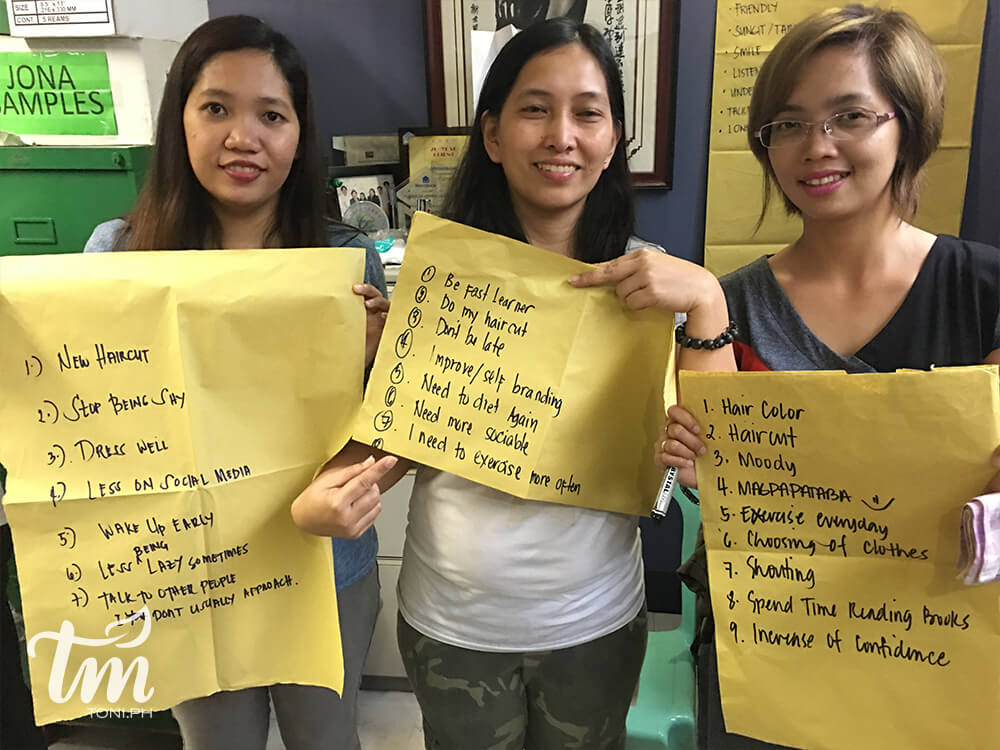 SIZE 8.5" x 13"
216 x 330 MM
CONT 5 REAMS
JONA
SAMPLES
· FRIENDLY
· SMILE
1.) NEW HAIRCUT
2.) STOP BEING SHY
3.) DRESS WELL
4.) LESS ON SOCIAL MEDIA
5.) WAKE UP EARLY
BEING
6.) LESS LAZY SOMETIMES
7.) TALK TO OTHER PEOPLE
DON'T USUALLY APPROACH.
1 Be Fast Learner
2. Do my haircut
3. Don't be late
4. Improve/self branding
5. Need to diet Again
6. Need more sociable
7. I need to exercise more often
1. Hair Color
2. Haircut
3. Moody
4. MAGPAPATABA
5. Exercise everyday
6. Choosing of Clothes
7. Shouting
8. Spend Time Reading Books
9. Increase of Confidence
tm
TONI.PH